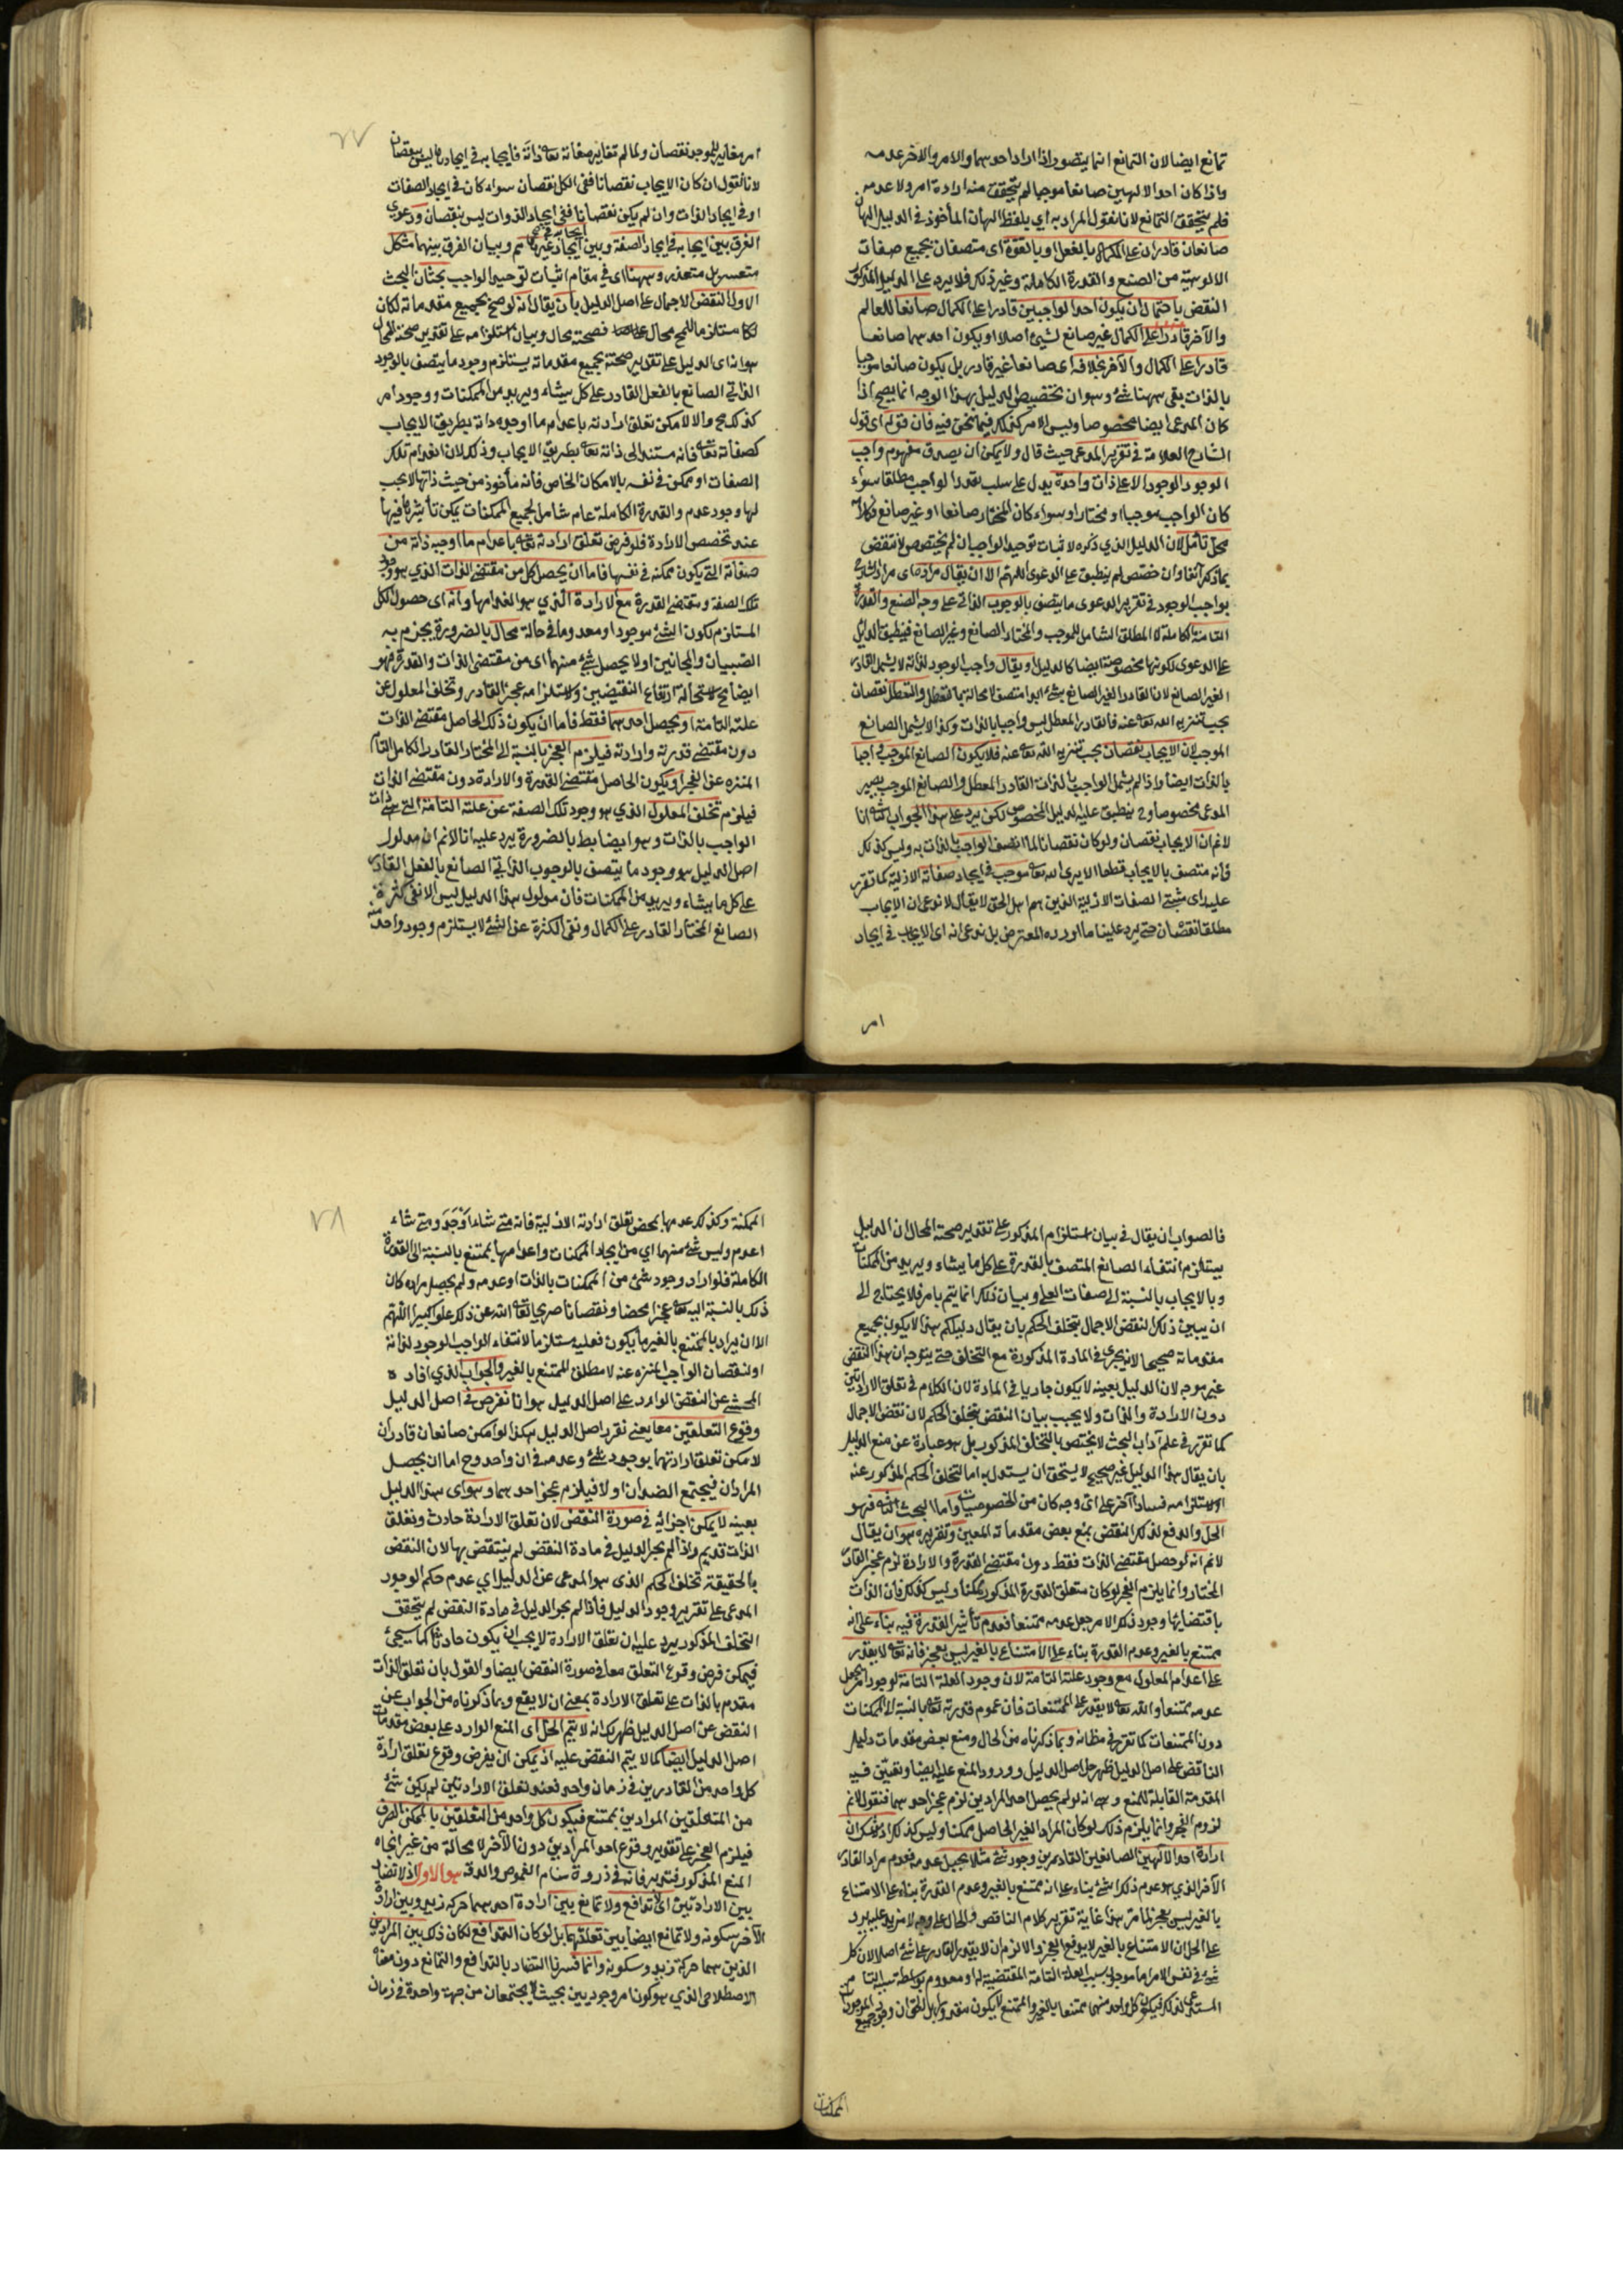 تمانع ايضا لان التمانع انما يتصور اذا اراد احدهما والامر والاخر عدمه
واذا كان احد الالهين صانعا موجبا لم يتحقق منه ارادة امر ولا عدمه
فلم يتحقق التمانع لانا نقول المراد به اي بلفظ الهان المأخوذ في الدليل الهان
صانعان قادران على الكمال بالفعل او بالقوة اى متصفان بجميع صفات
الالوهية من الصنع والقدرة الكاملة وغير ذلك فلا يرد على الدليل المذكور
النقض باحتمال ان يكون احد الواجبين قادرا على الكمال صانعا للعالم
والآخر قادرا على الكمال غير صانع لشئ اصلا او يكون احدهما صانعا
قادرا على الكمال والآخر بخلافه اى صانعا غير قادر بل يكون صانعا موجبا
بالذات بقى ههنا شئ وهو ان تخصيص الدليل بهذا الوجه انما يصح اذا
كان المدعى ايضا مخصوصا وليس الامر كذلك فيما نحن فيه فان قوله اى قول
الشارح العلامة في تقرير المدعى حيث قال ولا يمكن ان يصدق مفهوم واجب
الوجود الوجود الا على ذات واحدة يدل على سلب تعدد الواجب مطلقا سواء
كان الواجب موجبا او مختارا وسواء كان المختار صانعا او غير صانع فكلامه
محل تأمل لان الدليل الذي ذكره لاثبات توحيد الواجب ان لم يختص لانتقض
بما ذكر آنفا وان خصص لم ينطبق على الدعوى اللهم الا ان يقال مراده اى مراد الشارح
بواجب الوجود في تقرير الدعوى ما يتصف بالوجوب الذاتي على وجه الصنع والقدرة
التامة الكاملة لا المطلق الشامل للموجب والمختار الصانع وغير الصانع فينطبق الدليل
على الدعوى لكونها مخصوصة ايضا كالدليل او يقال واجب الوجود لذاته لا يشمل القادر
الغير الصانع لان القادر الغير الصانع بشئ ابدا متصف لا محالة بالتعطل والتعطل نقصان
يجب تنزيه الله تعه عنه فالقادر المعطل ليس واجبا بالذات وكذا لا يشمل الصانع
الموجب لان الايجاب نقصان يجب تنزيه الله تعه عنه فلا يكون الصانع الموجب واجبا
بالذات ايضا واذا لم يشمل الواجب بالذات القادر المعطل والصانع الموجب يصير
المدعى مخصوصا وح ينطبق عليه الدليل المخصوص لكن يرد على هذا الجواب الثانى انا
لا نم ان الايجاب نقصان ولو كان نقصانا لما اتصف الواجب بالذات به وليس كذلك
فانه متصف بالايجاب قطعا الا يرى انه تعه موجب في ايجاد صفاته الازلية كما تقرر
عليه راى مثبتي الصفات الازلية الذين هم اهل الحق لا يقال لا ندعى ان الايجاب
مطلقا نقصان حتى يرد علينا ما اورده المعترض بل ندعى انه اى الايجاب في ايجاد
امر
٢٧
امر مغاير للموجد نقصان ولما لم تغاير صفاته تعه ذاته فايجابه في ايجادها ليس بنقصان
لانا نقول ان كان الايجاب نقصانا ففى الكل نقصان سواء كان في ايجاد الصفات
او في ايجاد الذات وان لم يكن نقصانا ففى ايجاد الذوات ليس بنقصان ودعوى
الفرق بين ايجابه في ايجاد الصفة وبين ايجابه في ايجاد غيرها تحكم وبيان الفرق بينهما مشكل
متعسر بل متعذر وههنا اى في مقام اثبات توحيد الواجب بحثان البحث
الاول النقض الاجمالى على اصل الدليل بان يقال انه لو صح بجميع مقدماته لكان
مستلزما للمح محال فصحته محال وبيان استلزامه على تقدير صحته المحال
هو انه اى الدليل على تقدير صحته بجميع مقدماته يستلزم وجود ما يتصف بالوجود
الذاتي الصانع بالفعل القادر على كل ما يشاء ويريد من الممكنات ووجود امر
كذلك مح والا لامكن تعلق ارادته باعدام ما اوجبه ذاته بطريق الايجاب
كصفاته تعه فانه مستند الى ذاته تعه بطريق الايجاب وذلك لان انعدام تلك
الصفات امر ممكن في نفسه بالامكان الخاص فانه مأخوذ من حيث ذاتها لا يجب
لها وجود عدم والقدرة الكاملة عام شامل لجميع الممكنات يمكن تأثيرها فيها
عند تخصص الارادة فلو فرض تعلق ارادته تعه باعدام ما اوجبه ذاته من
صفاته التى يكون ممكنة في نفسها فاما ان يحصل كل من مقتضى الذات الذي هو وجود
تلك الصفة ومقتضى القدرة مع الارادة الذي هو انعدامها وانه اى حصول الكل
المستلزم لكون الشئ موجودا ومعدوما في حالة محال بالضرورة يجزم به
الصبيان والمجانين او لا يحصل شئ منهما اى من مقتضى الذات والقدرة فهو
ايضا مح لاستحالة ارتفاع النقيضين ولاستلزامه عجز القادر وتخلف المعلول عن
علته التامة او يحصل احدهما فقط فاما ان يكون ذلك الحاصل مقتضى الذات
دون مقتضى قدرته وارادته فيلزم العجز بالنسبة الى المختار القادر الكامل التام
المنزه عن العجز او يكون الحاصل مقتضى القدرة والارادة دون مقتضى الذات
فيلزم تخلف المعلول الذي هو وجود تلك الصفة عن علته التامة التى هى ذات
الواجب بالذات وهو ايضا بط بالضرورة يرد عليه انا لا نم ان مدلول
اصل الدليل هو وجود ما يتصف بالوجوب الذاتي الصانع بالفعل القادر
على كل ما يشاء ويريد من الممكنات فان مدلول هذا الدليل ليس الا نفى كثرة
الصانع المختار القادر على الكمال ونفى الكثرة عن الشئ لا يستلزم وجود واحد منه
فالصواب ان يقال في بيان استلزام المذكور على تقدير صحة المحال ان الدليل
يستلزم انتفاء الصانع المتصف بالقدرة على كل ما يشاء ويريد من الممكنات
وبالايجاب بالنسبة الى صفات العلى وبيان ذلك انما يتم بامر فلا يحتاج الى
ان يبين ذلك النقض الاجمالى بتخلف الحكم بان يقال دليلكم هذا لا يكون بجميع
مقدماته صحيحا لانه يجرى في المادة المذكورة مع التخلف حتى يتوجه ان هذا النقض
غير موجه لان الدليل بعينه لا يكون جاريا في المادة لان الكلام في تعلق الارادتين
دون الارادة والذات ولا يجب بيان النقض بتخلف الحكم لان نقض الاجمالى
كما تقرر في علم آداب البحث لا يختص بالتخلف المذكور بل هو عبارة عن منع الدليل
بان يقال هذا الدليل غير صحيح لا يستحق ان يستدل به اما لتخلف الحكم المذكور عنه
او لاستلزامه فسادا آخر على اى وجه كان من الخصوصيات واما البحث الثانى فهو
الحل والدفع لذلك النقض بمنع بعض مقدماته المعين وتقريره هو ان يقال
لا نم انه لو حصل مقتضى الذات فقط دون مقتضى القدرة والارادة لزم عجز القادر
المختار وانما يلزم العجز لو كان متعلق القدرة المذكور ممكنا وليس كذلك فان الذات
باقتضائها وجود ذلك الامر جعل عدمه ممتنعا فعدم تأثير القدرة فيه بناء على انه
ممتنع بالغير وعدم القدرة بناء على الامتناع بالغير ليس بعجز فانه تعه لا يقدر
على اعدام المعلول مع وجود علته التامة لان وجود العلة التامة لوجود امر يجعل
عدمه ممتنعا والله تعه لا يقدر على الممتنعات فان عموم قدرته تعه بالنسبة الى الممكنات
دون الممتنعات كما تقرر في مظانه وبما ذكرناه من الحال ومنع بعض مقدمات دليل
الناقض على اصل الدليل ظهر حل اصل الدليل وورود المنع عليه ايضا وتعين فيه
المقدمة القابلة للمنع وهى انه لو لم يحصل احد المرادين لزم عجز احدهما فنقول لا نم
لزوم العجز وانما يلزم ذلك لو كان المراد الغير الحاصل ممكنا وليس كذلك
ارادة احد الآلهين الصانعين القادرين وجود شئ مثلا يحيل عدمه فعدم مراد القادر
الآخر الذي هو عدم ذلك الشئ بناء على انه ممتنع بالغير وعدم القدرة بناء على الامتناع
بالغير ليس بعجز لما مر هذا غاية تقرير كلام الناقض والحال على وجه لا مزيد عليه يرد
على الحل ان الامتناع بالغير لا يدفع العجز والا لزم ان لا يقدر القادر على شئ اصلا لان كل
شئ في نفس الامر اما موجود بسبب العلة التامة المقتضية له او معدوم بواسطة سببه التام
المستدعى لذلك فيكون كل واحد منهما ممتنعا بالغير والممتنع لا يكون مقدورا بل الحق ان وجود جميع
الممكنات
٢٨
الممكنة وكذلك عدمها بمحض تعلق ارادته الازلية فانه متى شاء اوجد ومتى شاء
اعدم وليس شئ منهما اي من ايجاد الممكنات واعدامها بممتنع بالنسبة الى القدرة
الكاملة فلو اراد وجود شئ من الممكنات بالذات او عدمه ولم يحصل مراده كان
ذلك بالنسبة اليه تعه عجزا محضا ونقصانا صريحا تعه الله عن ذلك علوا كبيرا اللهم
الا ان يراد بالممتنع بالغير ما يكون فعليه مستلزما لانتفاء الواجب الوجود لذاته
او لنقصان الواجب المنزه عنه لا مطلق الممتنع بالغير والجواب الذي افاده
المحشى عن النقض الوارد على اصل الدليل هو انا نفرض في اصل الدليل
وقوع التعلقين معا يعنى نقرر اصل الدليل هكذا لو امكن صانعان قادران
لامكن تعلق ارادتهما بوجود شئ وعدمه في ان واحد وح اما ان يحصل
المرادان فيجتمع الضدان او لا فيلزم عجز احدهما وهو اى هذا الدليل
بعينه لا يمكن اجرائه في صورة النقض لان تعلق الارادة حادث وتعلق
الذات قديم واذا لم يجر الدليل في مادة النقض لم ينتقض بها لان النقض
بالحقيقة تخلف الحكم الذى هو المدعى عن الدليل اي عدم حكم الوجود
المدعى على تقرير وجود الدليل فاذا لم يجر الدليل في مادة النقض لم يتحقق
التخلف المذكور يرد عليه ان تعلق الارادة لا يجب ان يكون حادثا كما سيجئ
فيمكن فرض وقوع التعلق معا في صورة النقض ايضا والقول بان تعلق الذات
مقدم بالذات على تعلق الارادة بمعنى ان لا يقع وبما ذكرناه من الجواب عن
النقض عن اصل الدليل ظهر لك انه لا يتم الحل اى المنع الوارد على بعض مقدمات
اصل الدليل ايضا كما لا يتم النقض عليه اذ يمكن ان يفرض وقوع تعلق ارادة
كل واحد من القادرين في زمان واحد فعند تعلق الارادتين لم يكن شئ
من المتعلقين المرادين بممتنع فيكون كل واحد من التعلقين بالممكن الصرف
فيلزم العجز على تقدير وقوع احد المرادين دون الآخر لا محالة من غير اتجاه
المنع المذكور فتدبر فانه في ذروة سنام الغموض والدقة هو الاول اذ لا تضاد
بين الارادتين اى لا تدافع ولا تمانع بين ارادة احدهما حركة زيد وبين ارادة
الآخر سكونه ولا تمانع ايضا بين تعلقهما بل لو كان التدافع لكان ذلك بين المرادين
الذين هما حركة زيد وسكونه وانما فسرنا التضاد بالتدافع والتمانع دون معناه
الاصطلاحى الذي هو كون امر وجوديين بحيث لا يجتمعان من جهة واحدة في زمان